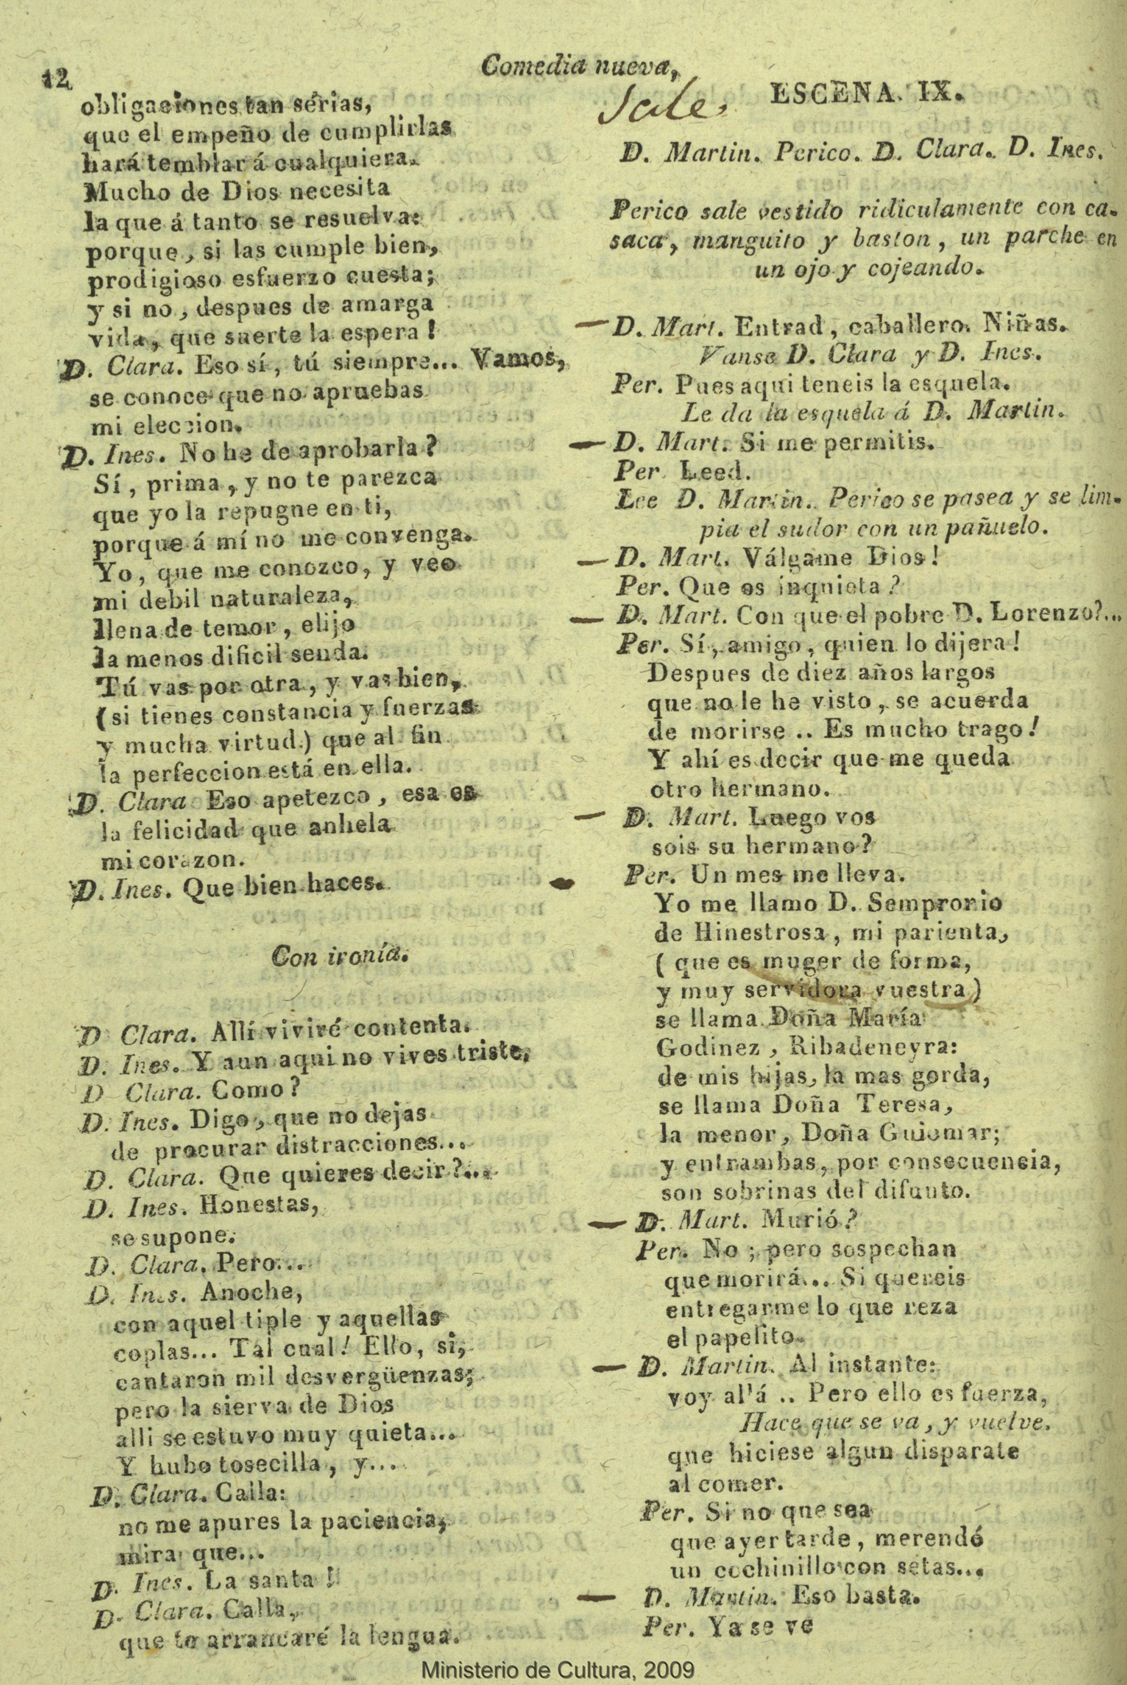 12
Comedia nueva,
obligaciones tan sérias,
que el empeño de cumplirlas
hará temblar á cualquiera.
Mucho de Dios necesita
la que á tanto se resuelva:
porque, si las cumple bien,
prodigioso esfuerzo cuesta;
y si no, despues de amarga
vida, que suerte la espera!
D. Clara. Eso sí, tú siempre... Vamos,
se conoce que no apruebas
mi eleccion.
D. Ines. No he de aprobarla?
Sí, prima, y no te parezca
que yo la repugne en ti,
porque á mí no me convenga.
Yo, que me conozco, y veo
mi debil naturaleza,
llena de temor, elijo
la menos dificil senda.
Tú vas por otra, y vas bien,
(si tienes constancia y fuerzas
y mucha virtud.) que al fin
la perfeccion está en ella.
D. Clara Eso apetezco, esa es
la felicidad que anhela
mi corazon.
D. Ines. Que bien haces.
Con ironía.
D Clara. Allí viviré contenta.
D. Ines. Y aun aqui no vives triste,
D Clara. Como?
D. Ines. Digo, que no dejas
de procurar distracciones...
D. Clara. Que quieres decir?...
D. Ines. Honestas,
se supone.
D. Clara. Pero...
D. Ines. Anoche,
con aquel tiple y aquellas
coplas... Tal cual! Ello, si,
cantaron mil desvergüenzas;
pero la sierva de Dios
alli se estuvo muy quieta...
Y hubo tosecilla, y...
D. Clara. Calla:
no me apures la paciencia,
mira que...
D. Ines. La santa!
D. Clara. Calla,
que te arrancaré la lengua.
Sale,
ESCENA. IX.
D. Martin. Perico. D. Clara. D. Ines.
Perico sale vestido ridiculamente con ca-
saca, manguito y baston, un parche en
un ojo y cojeando.
D. Mart. Entrad, caballero. Niñas.
Vanse D. Clara y D. Ines.
Per. Pues aqui teneis la esquela.
Le da la esquela á D. Martin.
D. Mart. Si me permitis.
Per Leed.
Lee D. Martin. Perico se pasea y se lim-
pia el sudor con un pañuelo.
D. Mart. Válgame Dios!
Per. Que os inquieta?
D. Mart. Con que el pobre D. Lorenzo?...
Per. Sí, amigo, quien lo dijera!
Despues de diez años largos
que no le he visto, se acuerda
de morirse .. Es mucho trago!
Y ahí es decir que me queda
otro hermano.
D. Mart. Luego vos
sois su hermano?
Per. Un mes me lleva.
Yo me llamo D. Sempronio
de Hinestrosa, mi parienta,
(que es muger de forma,
y muy servidora vuestra)
se llama Doña María
Godinez, Ribadeneyra:
de mis hijas, la mas gorda,
se llama Doña Teresa,
la menor, Doña Guiomar;
y entrambas, por consecuencia,
son sobrinas del difunto.
D. Mart. Murió?
Per. No; pero sospechan
que morirá... Si quereis
entregarme lo que reza
el papelito.
D. Martin. Al instante:
voy allá .. Pero ello es fuerza,
Hace que se va, y vuelve.
que hiciese algun disparate
al comer.
Per. Si no que sea
que ayer tarde, merendó
un cochinillo con setas...
D. Martin. Eso basta.
Per. Ya se ve
Ministerio de Cultura, 2009